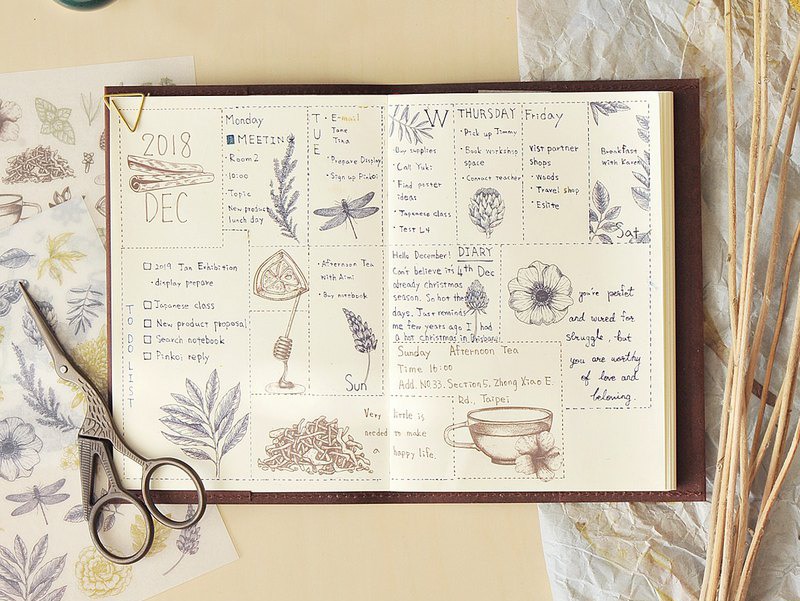 2018
DEC
Monday
MEETING
• Room 2
• 10:00
• Topic
New product
lunch day
TUE
• E-mail
Tane
Tina
• Prepare Display
• Sign up Pinkoi
W
• Buy supplies
• Call Yuki
• Find poster
ideas
• Japanese class
• Test L4
THURSDAY
• Pick up Jimmy
• Book workshop
space
• Contact teacher
Friday
Visit partner
shops
• Woods
• Travel shop
• Eslite
Breakfast
with Karen
Sat
TO DO LIST
2019 Jan Exhibition
• display prepare
Japanese class
New product proposal
Search notebook
Pinkoi reply
• Afternoon Tea
with Aimi
• Buy notebook
Sun
Very little is
needed to make
a happy life.
DIARY
4th Dec
Hello December!
Can't believe its
already christmas
season. So hot these
days. Just reminds
me few years ago I had
a hot christmas in Brisbane!
you're perfect
and wired for
struggle, but
you are worthy
of love and
beloning.
Sunday Afternoon Tea
Time 16:00
Add. No.33. Section 5. Zhong Xiao E.
Rd., Taipei